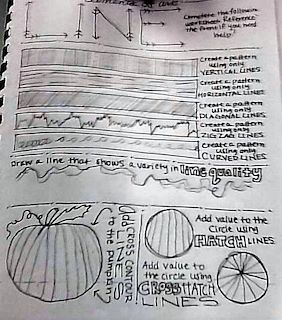 Elements of art
LINE
Complete the following
worksheet. Reference
the Prezi if you need
help!
Create a pattern
using only
VERTICAL LINES
Create a pattern
using only
HORIZONTAL LINES
Create a pattern
using only
DIAGONAL LINES
Create a pattern
using only
ZIGZAG LINES
Create a pattern
using only
CURVED LINES
Draw a line that shows a variety in line quality
Add CROSS CONTOUR
LINES
to the pumpkin
Add value to the
circle using
HATCH LINES
Add value to
the circle using
CROSS HATCH
LINES